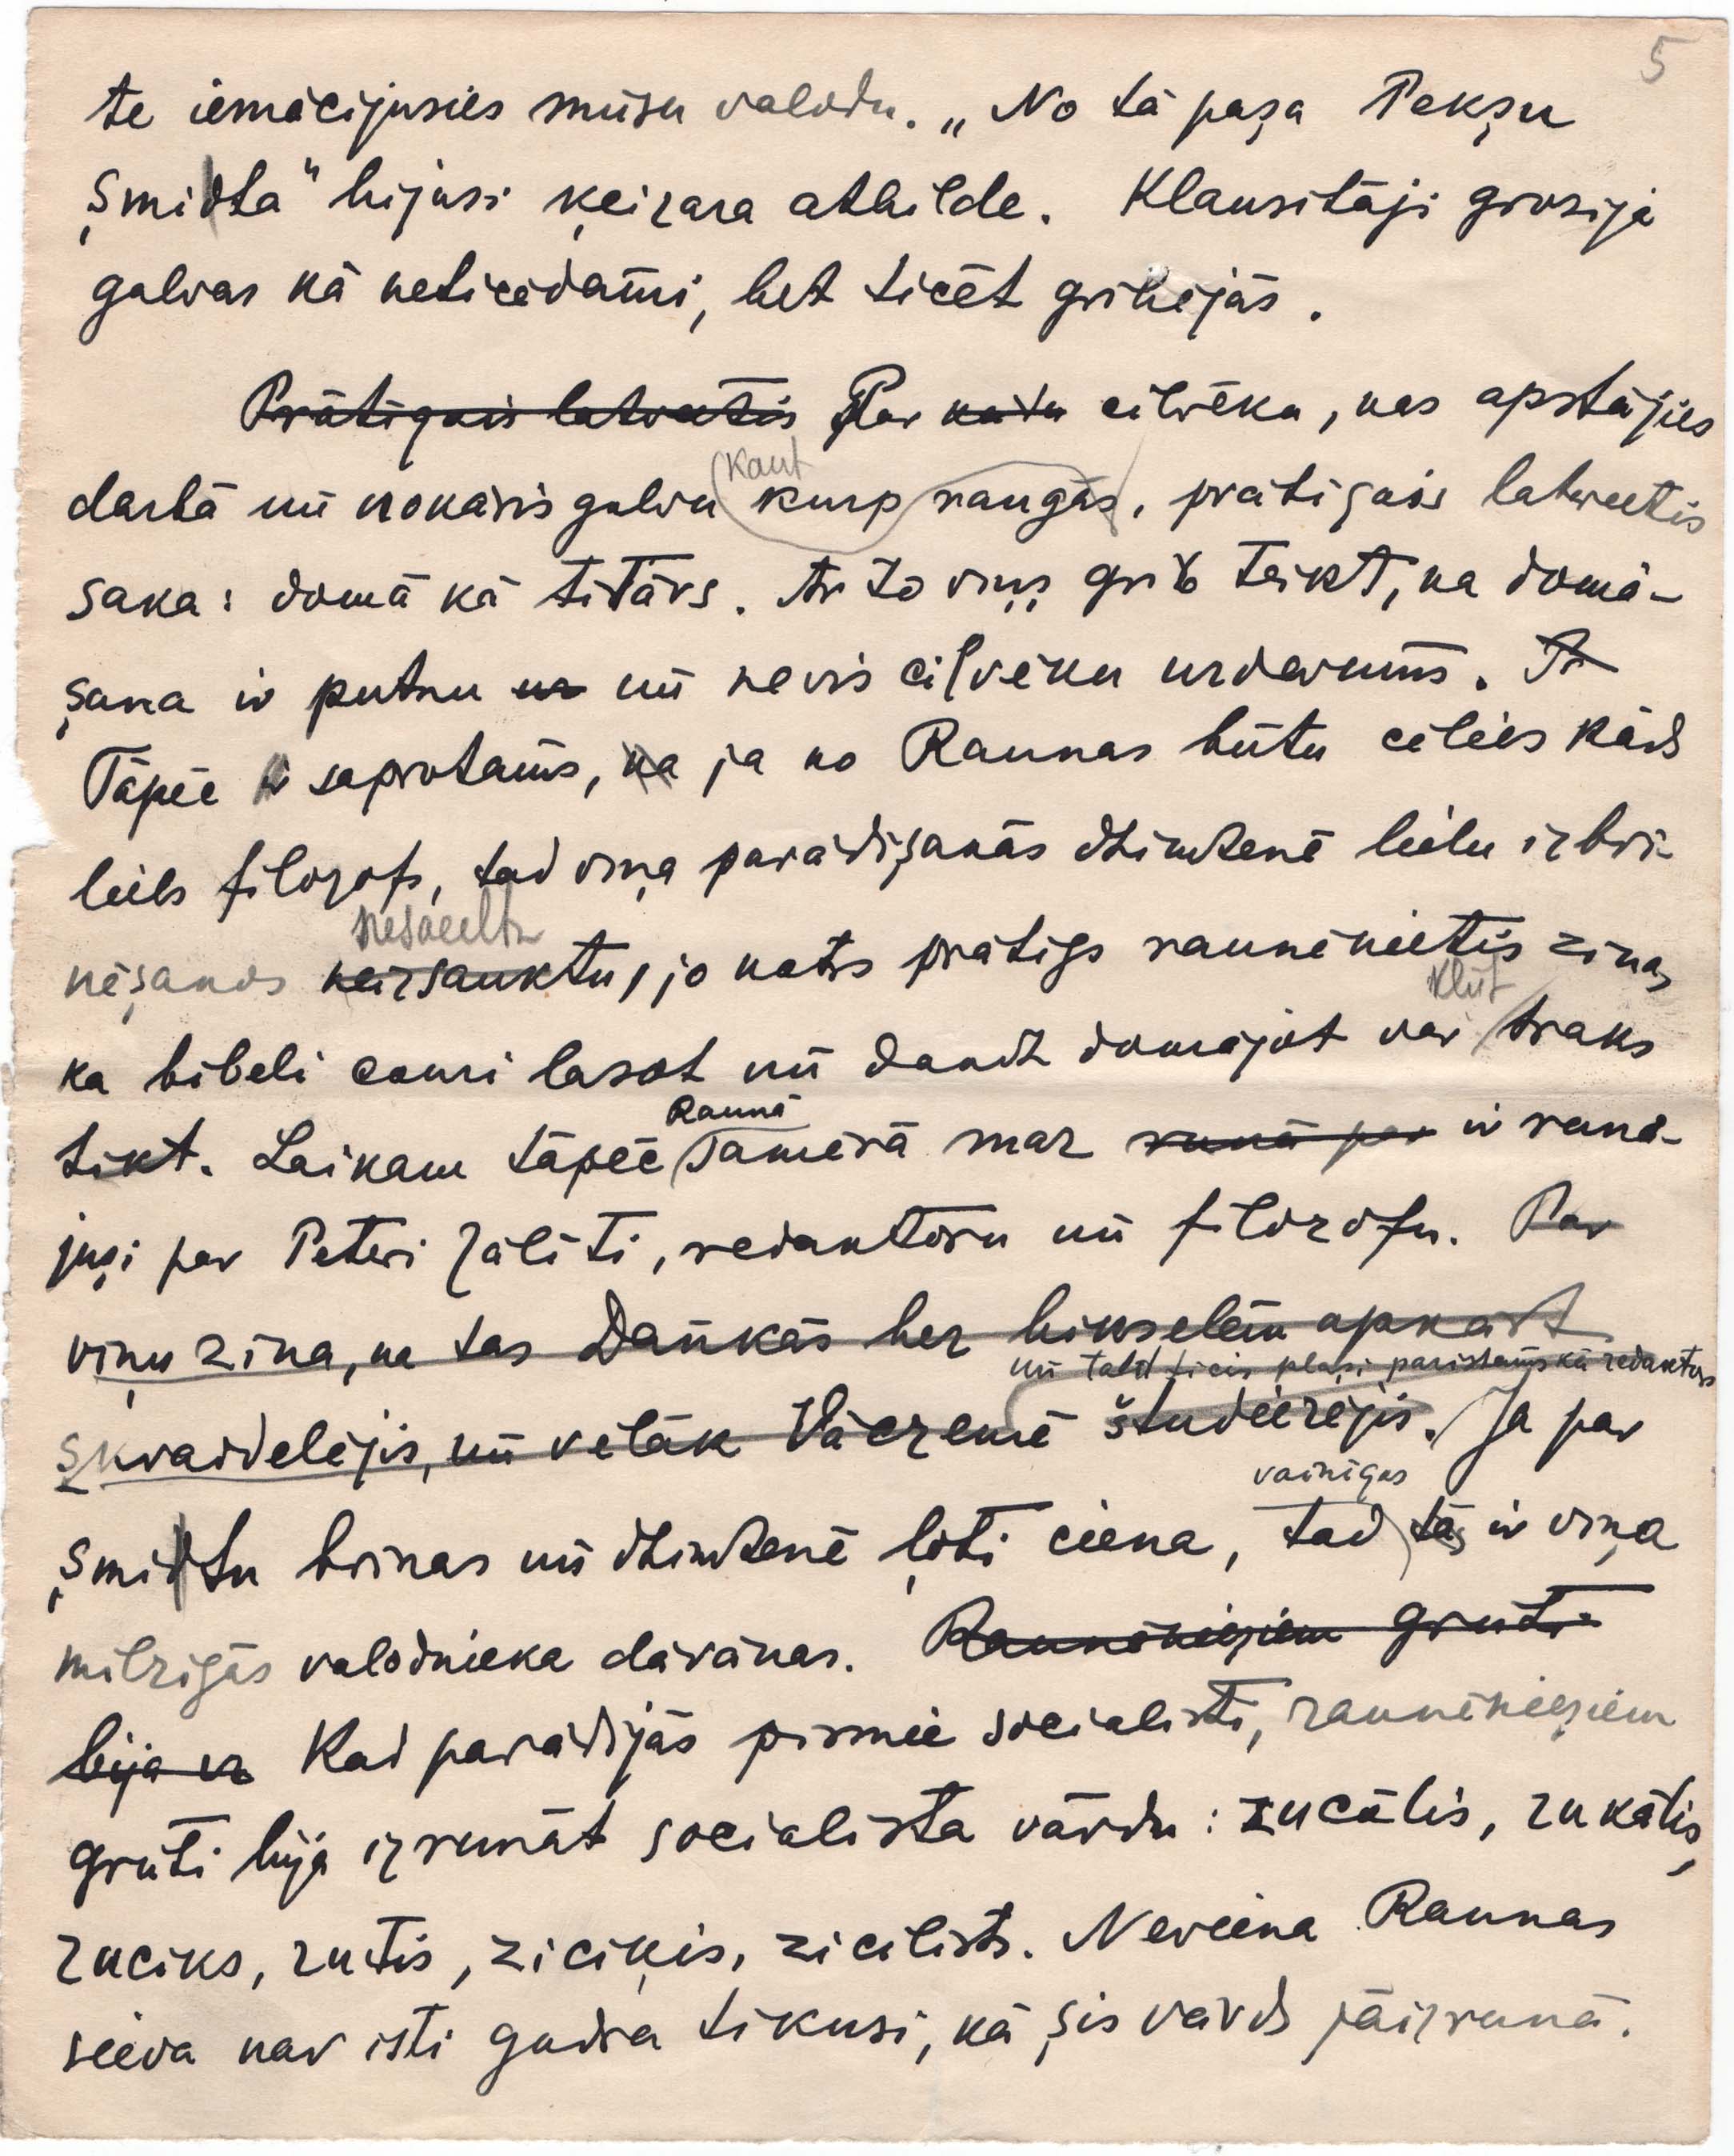 5
te iemācijusies mūsu valodu. „No tā paşa Pekşu
Şmidta" bijusi ķeizara atbilde. Klausitāji grozijā
galvas kā neticēdami, bet ticēt gribējās.
Prātigais latveetis Par kādu cilvēku, kas apstājies
darbā un nokāris galvu kaut kurp raugās, prātigais latveetis
saka: domā kā titārs. Ar to viņş grib teikt, ka domā-
şana ir putnu un nevis cilvēku uzdevums. Ar
Tāpēc ir saprotams, ka ja no Raunas būtu cēlies kāds
liels filozofs, tad viņa parādişanās dzimtenē lielu izbri-
nēşanos nesaceltu
neizsauktu, jo katrs prātigs raunēnietis zina,
klūt
ka bibeli cauri lasot un daudz domājot var traks
Raunā
tikt. Laikam tāpēc Tamērā maz runā par ir runā-
juşi par Peteri Zāliti, redaktoru un filozofu. Par
viņu zina, ka tas Dankās bez bikselēm apkārt
un tālāk ticis plaşi pazistams kā redaktors
skraidelējis, un vēlāk Vāczemē študieerējis. Ja par
vainigas
Şmidtu brinas un dzimtenē ļoti ciena, tad tās ir viņa
milzigās valodnieka dāvanas. Raunēnieşiem grūti
bija iz Kad parādijās pirmie socialisti, raunēnieşiem
grūti bija izrunāt socialista vārdu: zucālis, zukālis,
zuciks, zutis, ziciķis, zicilists. Neviena Raunas
sieva nav isti gudra tikusi, kā şis vārds jāizrunā.